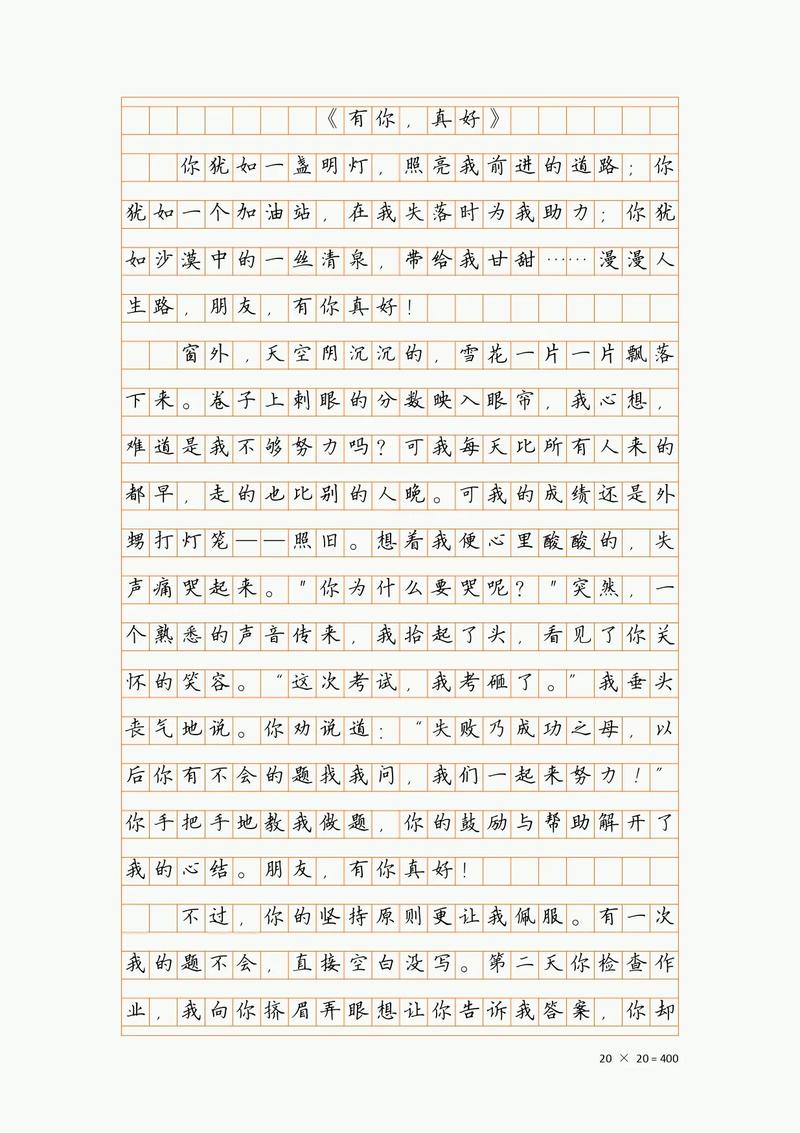 《有你，真好》
你犹如一盏明灯，照亮我前进的道路；你
犹如一个加油站，在我失落时为我助力；你犹
如沙漠中的一丝清泉，带给我甘甜……漫漫人
生路，朋友，有你真好！
窗外，天空阴沉沉的，雪花一片一片飘落
下来。卷子上刺眼的分数映入眼帘，我心想，
难道是我不够努力吗？可我每天比所有人来的
都早，走的也比别的人晚。可我的成绩还是外
甥打灯笼——照旧。想着我便心里酸酸的，失
声痛哭起来。"你为什么要哭呢？"突然，一
个熟悉的声音传来，我抬起了头，看见了你关
怀的笑容。“这次考试，我考砸了。”我垂头
丧气地说。你劝说道：“失败乃成功之母，以
后你有不会的题找我问，我们一起来努力！”
你手把手地教我做题，你的鼓励与帮助解开了
我的心结。朋友，有你真好！
不过，你的坚持原则更让我佩服。有一次
我的题不会，直接空白没写。第二天你检查作
业，我向你挤眉弄眼想让你告诉我答案，你却
20 × 20=400